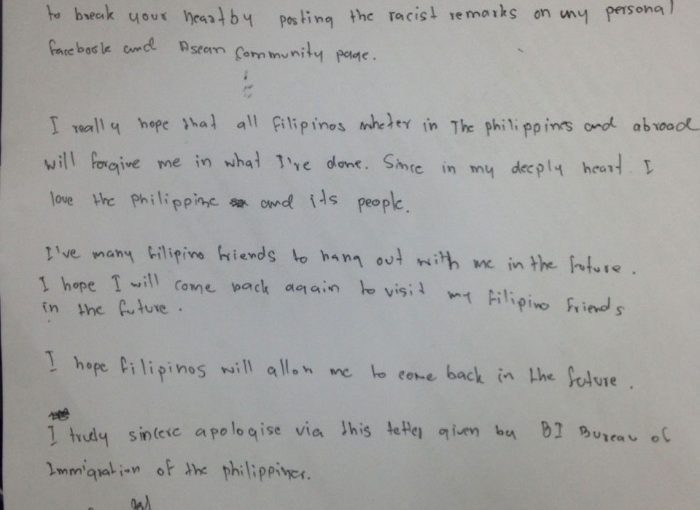 to break your heart by posting the racist remarks on my personal
facebook and Asean Community page.
I really hope that all Filipinos wheter in The philippines and abroad
will forgive me in what I've done. Since in my deeply heart I
love the philippine and its people.
I've many filipino friends to hang out with me in the future.
I hope I will come back again to visit my Filipino Friends
in the future.
I hope filipinos will allow me to come back in the future.
I truly sincere apologise via this letter given by BI Bureau of
Immigration of the philippines.